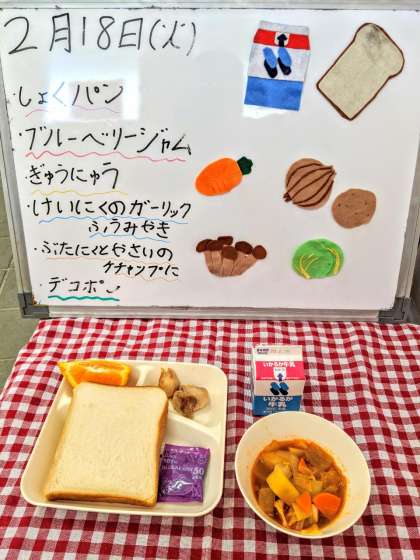 2月18日(火)
・しょくパン
・ブルーベリージャム
・ぎゅうにゅう
・けいにくのガーリック
ふうみやき
・ぶたにくとやさいの
ケチャップに
・デコポン
いかるが牛乳
いかるが
牛乳